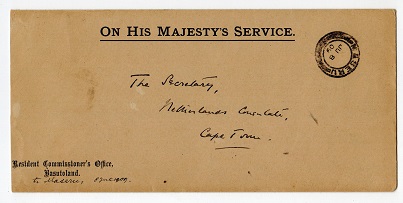 ON HIS MAJESTY'S SERVICE.
MASERU
JU 8
09
The Secretary,
Netherlands Consulate,
Cape Town.
Resident Commissioner's Office,
Basutoland.
Maseru,